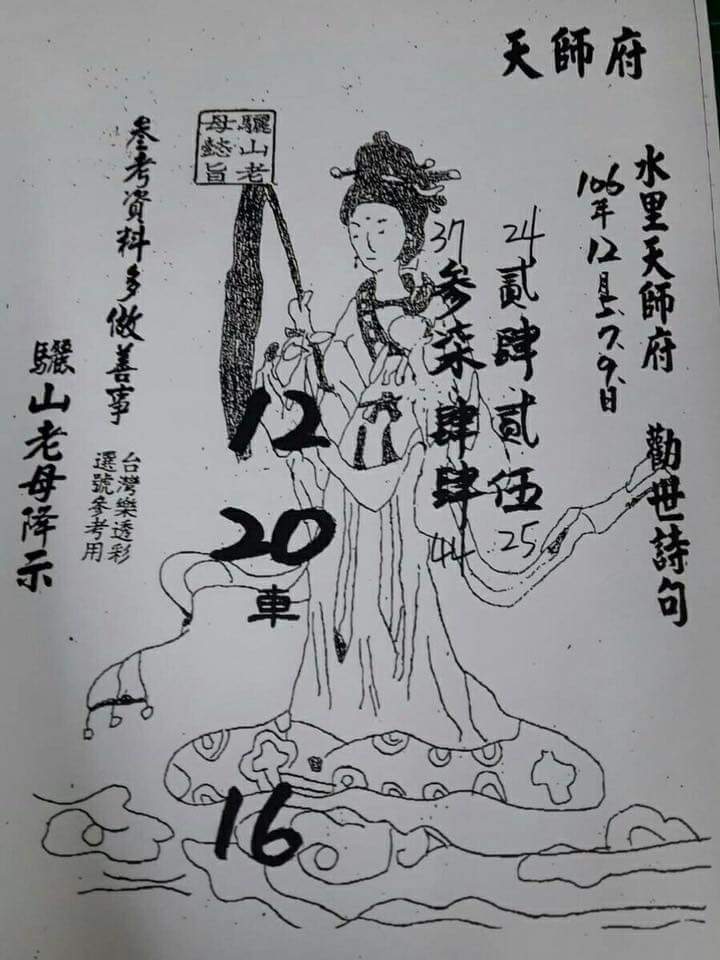 天師府
水里天師府 勸世詩句
106年12月5.7.9.日
24
貳肆貳伍
25
37
參柒肆肆
44
驪山老母懿旨
12
20
車
16
參考資料多做善事
台灣樂透彩
選號參考用
驪山老母降示